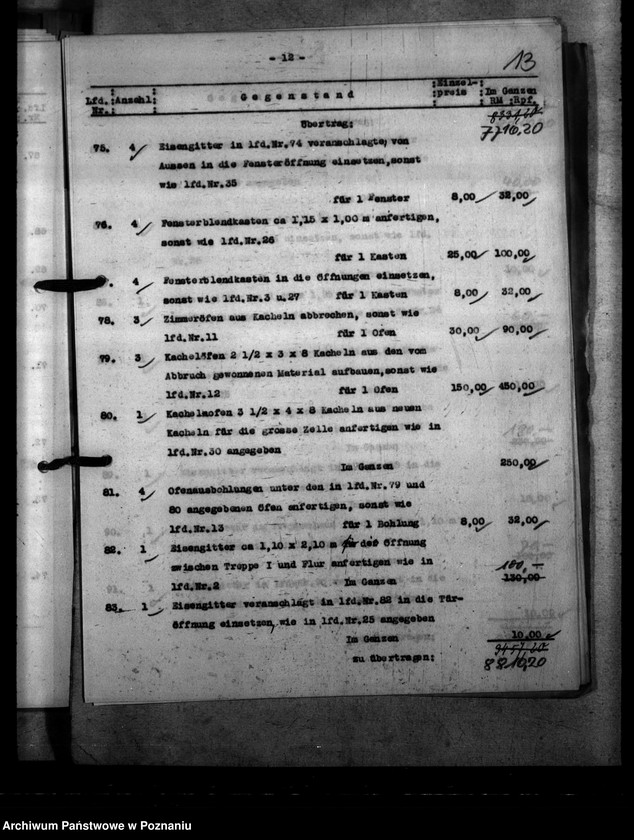 - 12 -
13
Lfd. Nr. : Anzahl: Gegenstand : Einzelpreis : Im Ganzen RM : Rpf.
Übertrag: 7710,20
75. 4 Eisengitter in lfd.Nr.74 veranschlagt, von
Aussen in die Fensteröffnung einsetzen, sonst
wie lfd.Nr.35
für 1 Fenster 8,00 32,00
76. 4 Fensterblendkasten ca 1,15 x 1,00 m anfertigen,
sonst wie lfd.Nr.26
für 1 Kasten 25,00 100,00
4 Fensterblendkasten in die Öffnungen einsetzen,
sonst wie lfd.Nr.3 u.27 für 1 Kasten 8,00 32,00
78. 3 Zimmeröfen aus Kacheln abbrechen, sonst wie
lfd.Nr.11 für 1 Ofen 30,00 90,00
79. 3 Kachelöfen 2 1/2 x 3 x 8 Kacheln aus den vom
Abbruch gewonnenen Material aufbauen, sonst wie
lfd.Nr.12 für 1 Ofen 150,00 450,00
80. 1 Kachelaofen 3 1/2 x 4 x 8 Kacheln aus neuen
Kacheln für die grosse Zelle anfertigen wie in
lfd.Nr.30 angegeben
Im Ganzen 250,00
81. 4 Ofenausbohlungen unter den in lfd.Nr.79 und
80 angegebenen Öfen anfertigen, sonst wie
lfd.Nr.13 für 1 Bohlung 8,00 32,00
82. 1 Eisengitter ca 1,10 x 2,10 m der Öffnung
zwischen Treppe I und Flur anfertigen wie in
lfd.Nr.2 Im Ganzen 100,- 130,00
83. 1 Eisengitter veranschlagt in lfd.Nr.82 in die Tür-
öffnung einsetzen, wie in lfd.Nr.25 angegeben
Im Ganzen 10,00
zu übertragen: 9457,60
8810,20
Archiwum Państwowe w Poznaniu